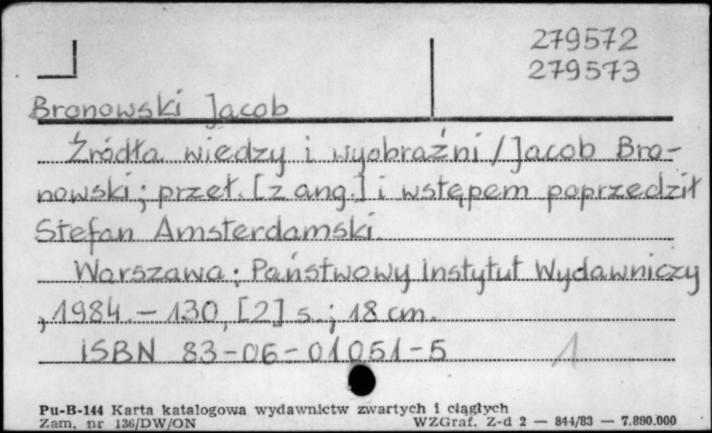 279572
279573
Bronowski Jacob
Źródła wiedzy i wyobraźni / Jacob Bro-
nowski ; przeł. [z ang.] i wstępem poprzedził
Stefan Amsterdamski.
Warszawa : Państwowy Instytut Wydawniczy
, 1984. – 130, [2] s. ; 18 cm.
ISBN 83-06-01051-5
1
Pu-B-144 Karta katalogowa wydawnictw zwartych i ciągłych
Zam. nr 136/DW/ON WZGraf. Z-d 2 — 844/83 — 7.890.000